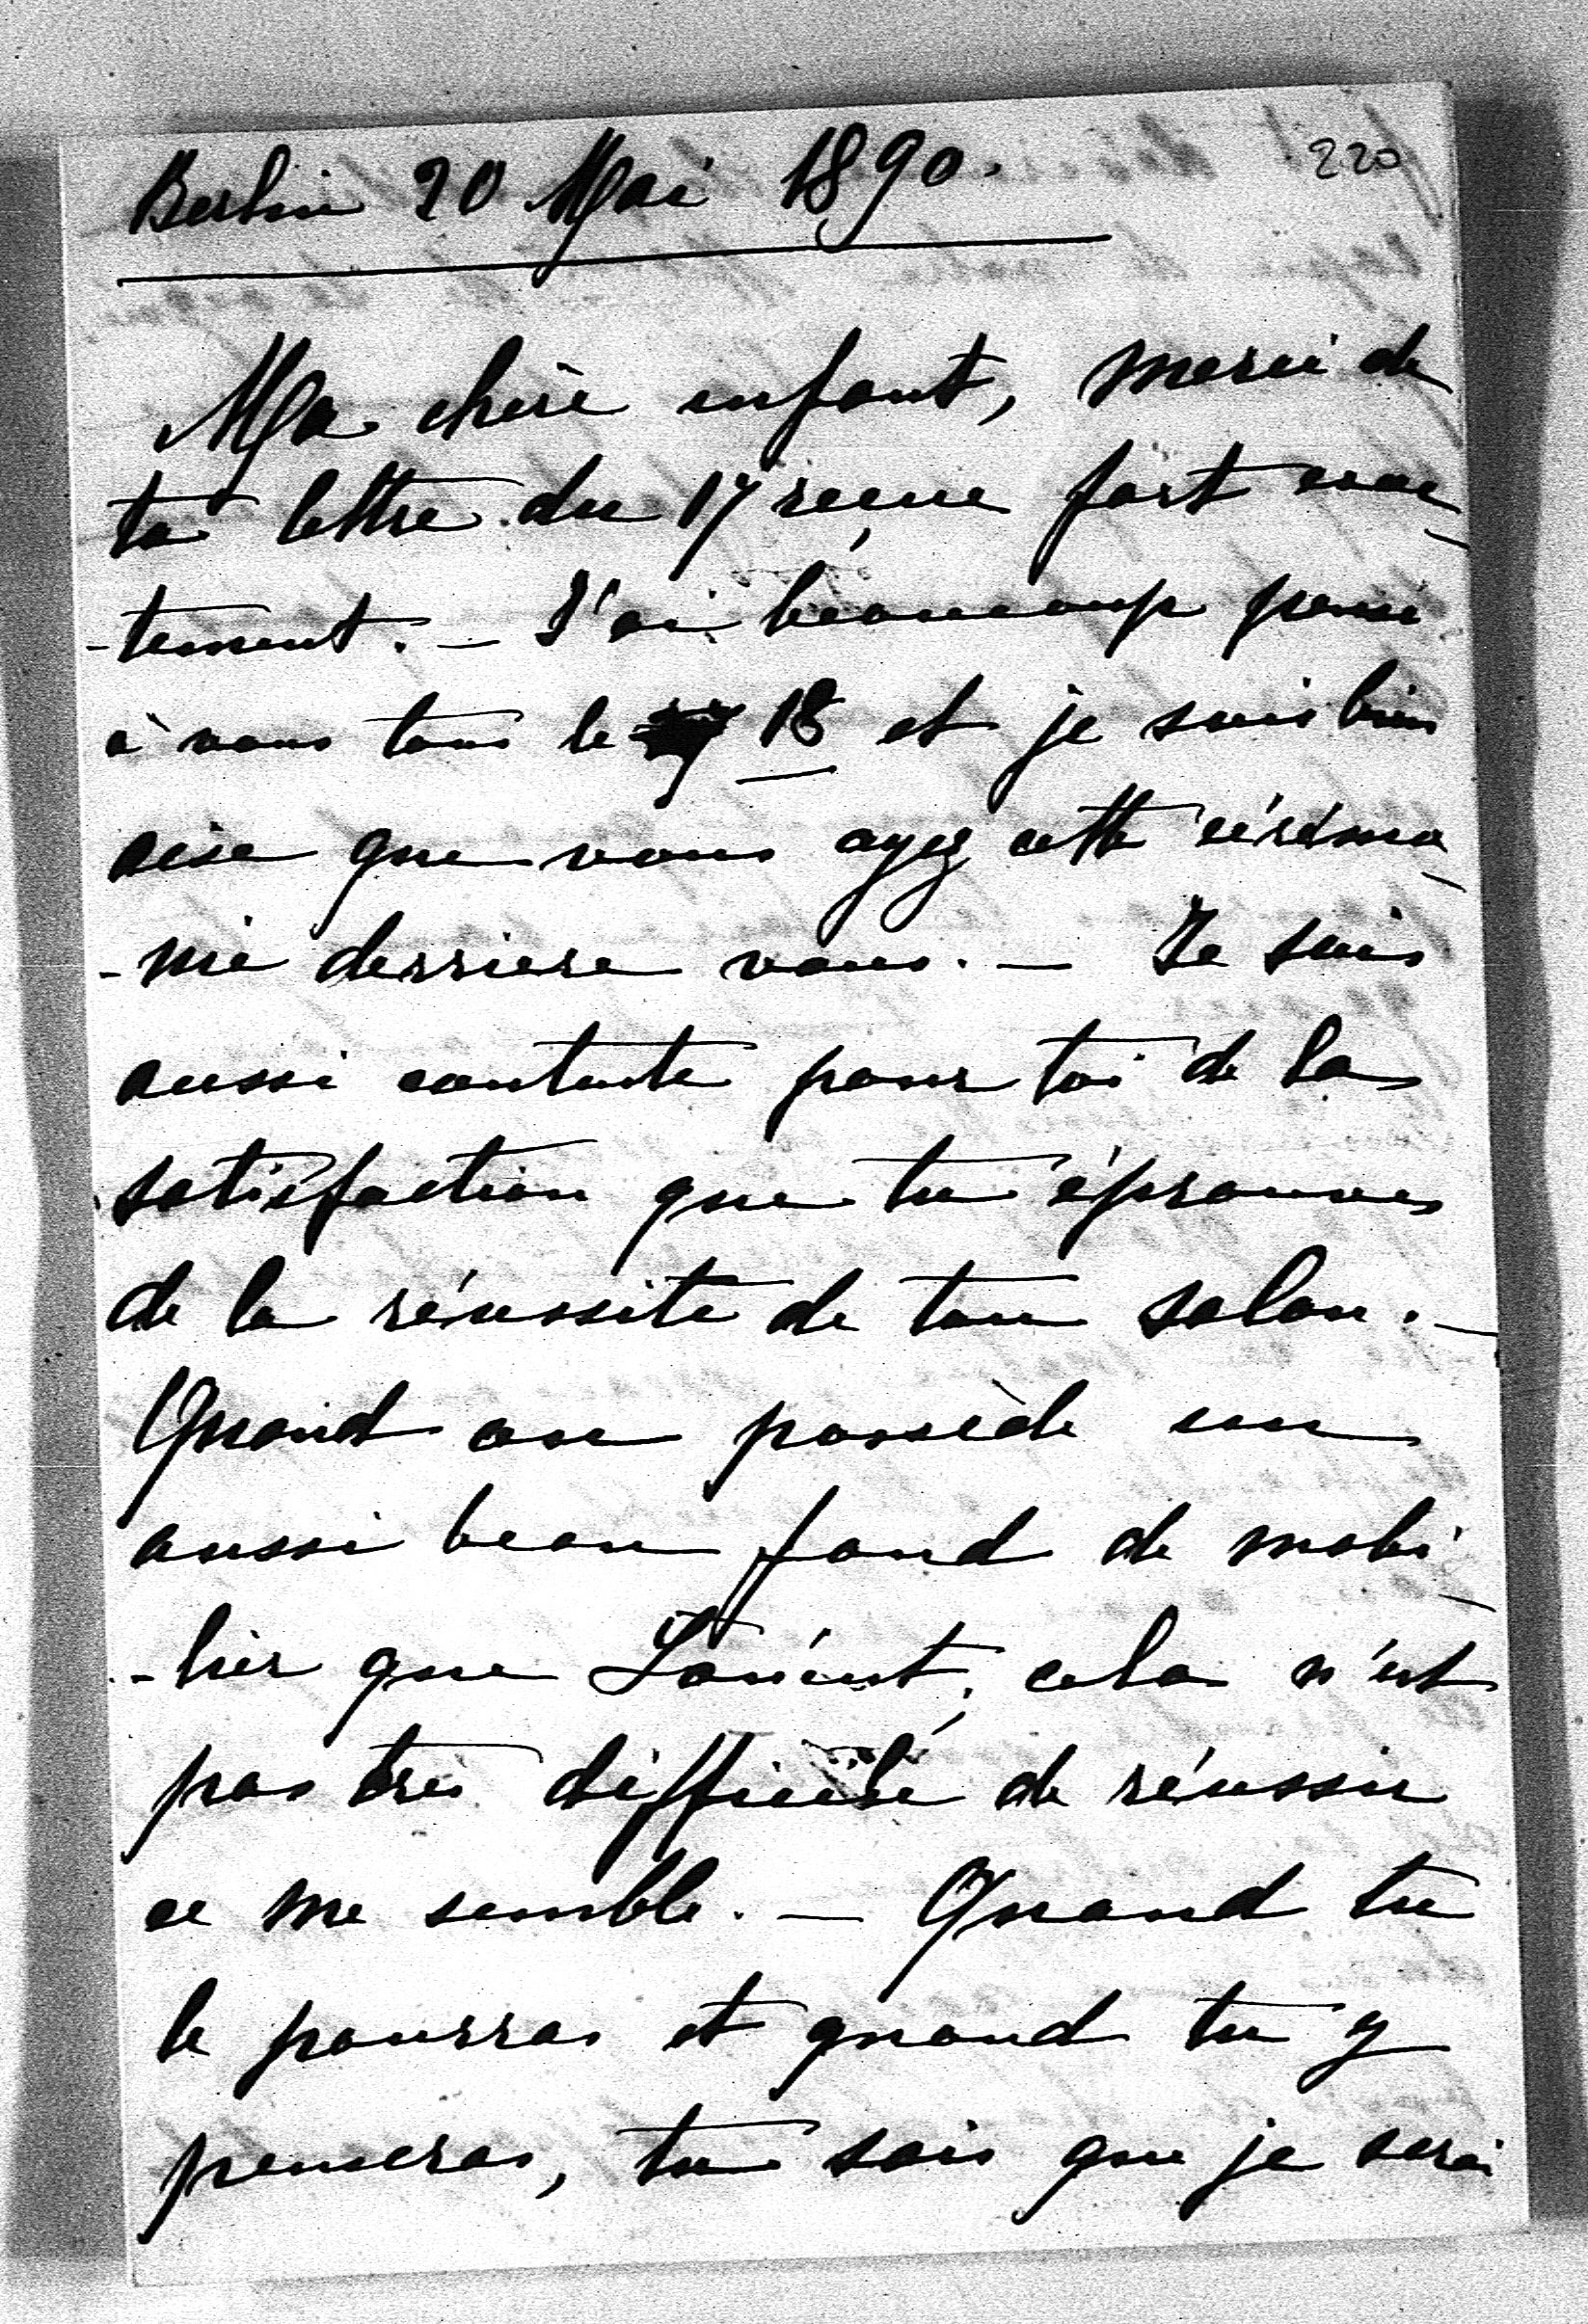 Berlin 20 Mai 1890.
220
Ma chère enfant, merci de
ta lettre du 17 reçue fort exac-
-tement. – J'ai beaucoup pensé
à vous tous le 18 et je suis bien
aise que vous ayez cette cérémo-
-nie derriere vous. – Je suis
aussi contente pour toi de la
satisfaction que tu éprouves
de la réussite de ton salon. –
Quand on possède un
aussi beau fond de mobi-
-lier que , cela n'est
pas très difficile de réussir
ce me semble. – Quand tu
le pourras et quand tu y
penseras, tu sais que je serai